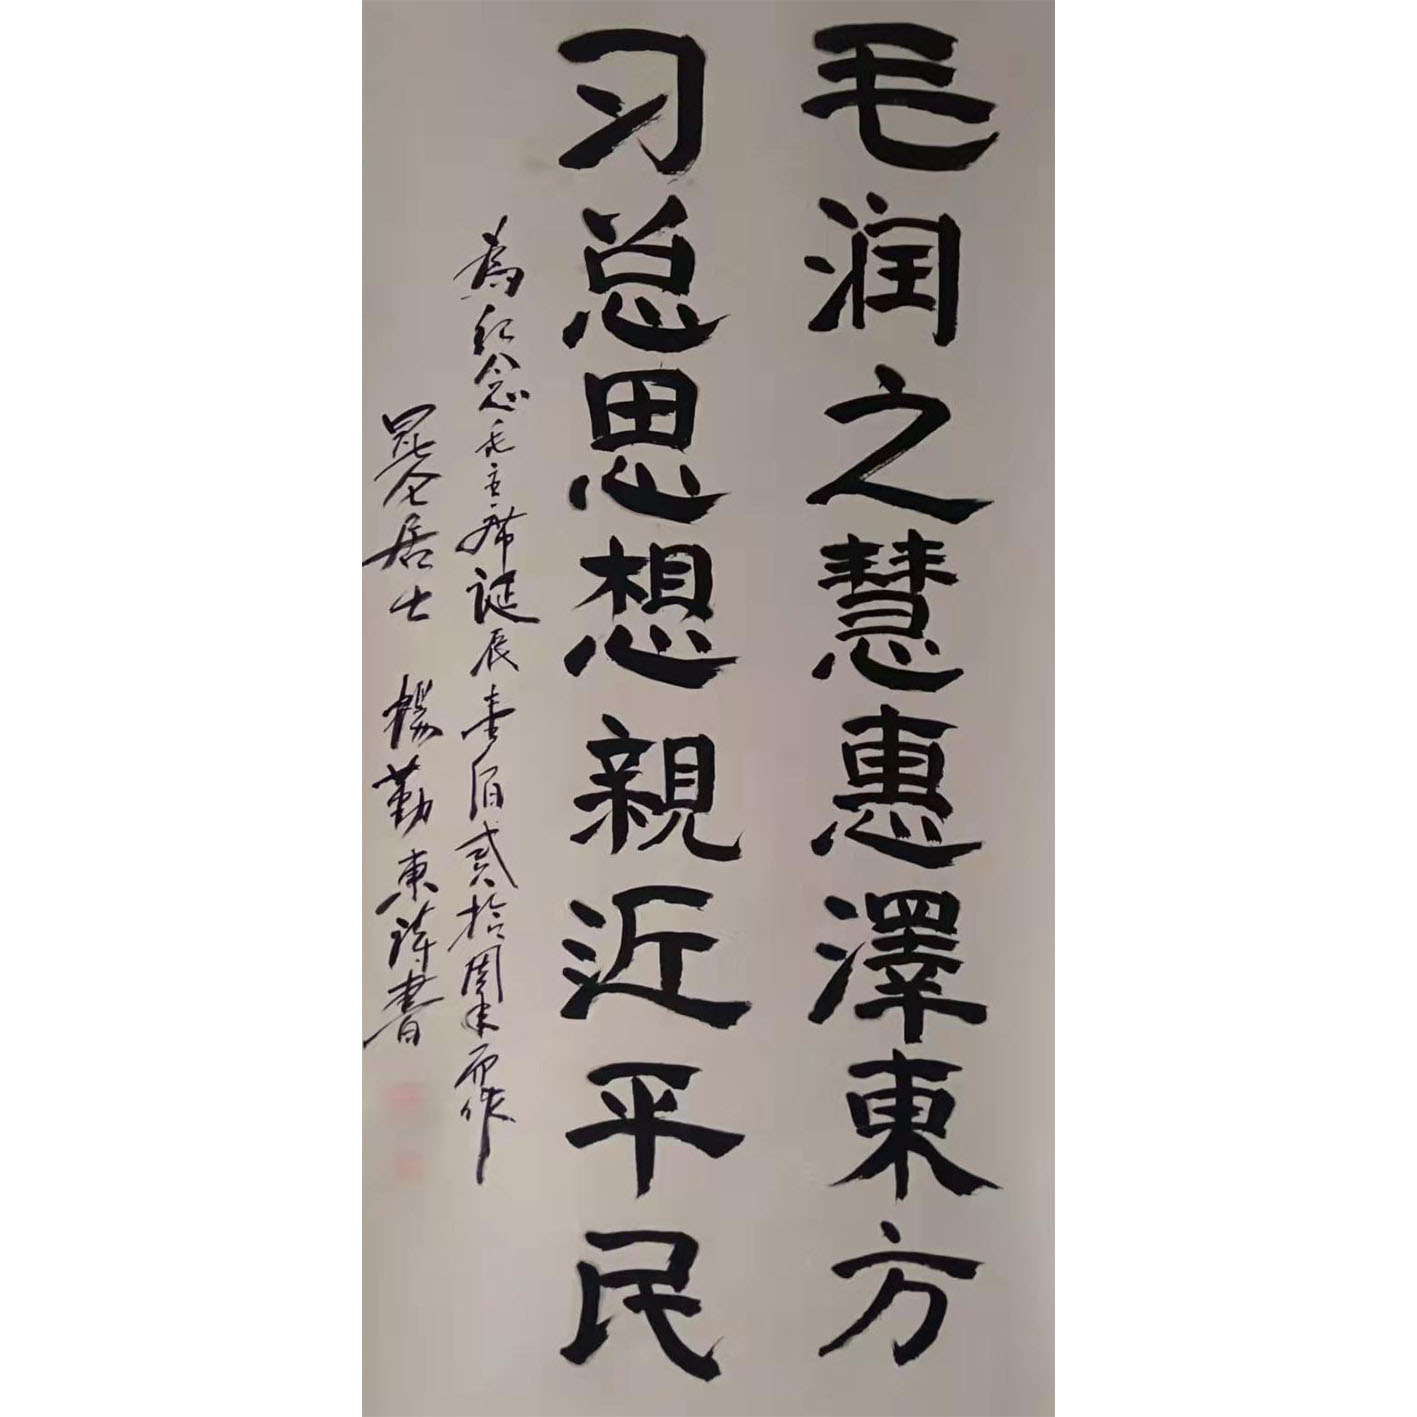 毛润之慧惠澤東方
习总思想親近平民
為纪念毛主席誕辰壹佰贰拾周年而作
昆仑居士 楊勤東詩書